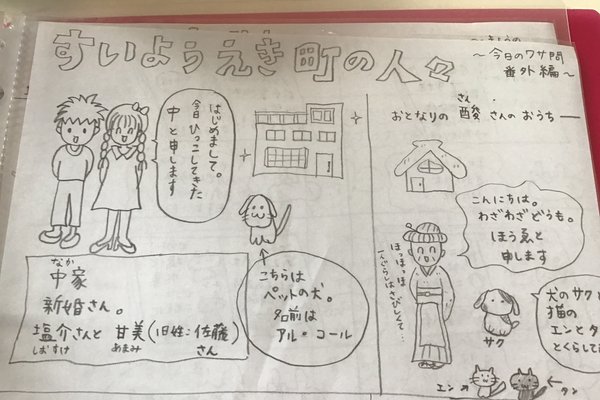 すいようえき町の人々
～今日のワザ問
番外編～
はじめまして。
今日ひっこしてきた
中と申します
なか
中家
新婚さん。
塩介さんと 甘美(旧姓:佐藤)
しおすけ あまみ さん
こちらは
ペットの犬。
名前は
アル・コール
さん
おとなりの 酸 さんのおうち
こんにちは。
わざわざどうも。
ほうゑと
申します
ほっほっほ
一人ぐらしはさびしくて…
サク
犬のサクと
猫の
エンとタ
とくらして
エン
タン